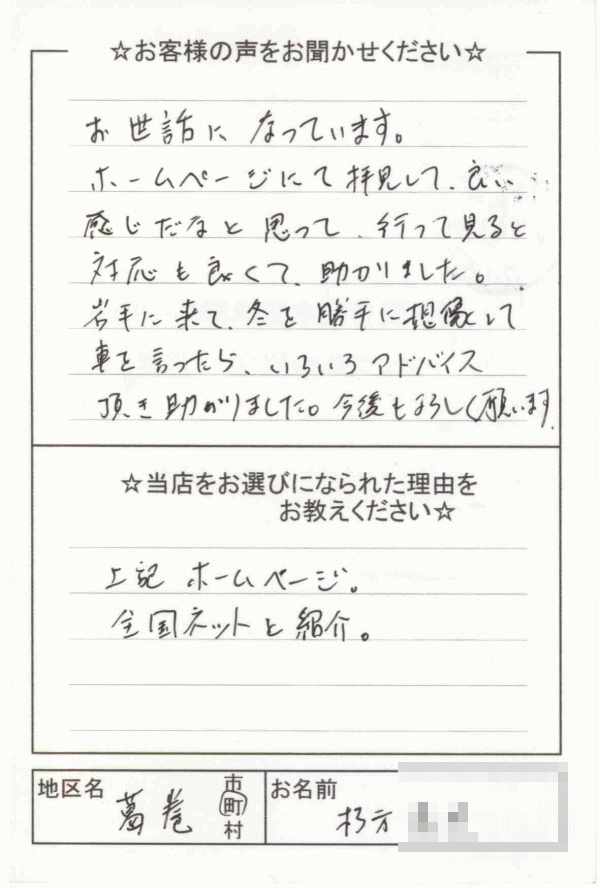 ☆お客様の声をお聞かせください☆
お世話になっています。
ホームページにて拝見して、良い
感じだなと思って、行って見ると
対応も良くて、助かりました。
岩手に来て、冬を勝手に想像して
車を言ったら、いろいろアドバイス
頂き助かりました。今後もよろしく願います。
☆当店をお選びになられた理由を
お教えください☆
上記 ホームページ。
全国ネットと紹介。
地区名 葛巻 市町村 お名前